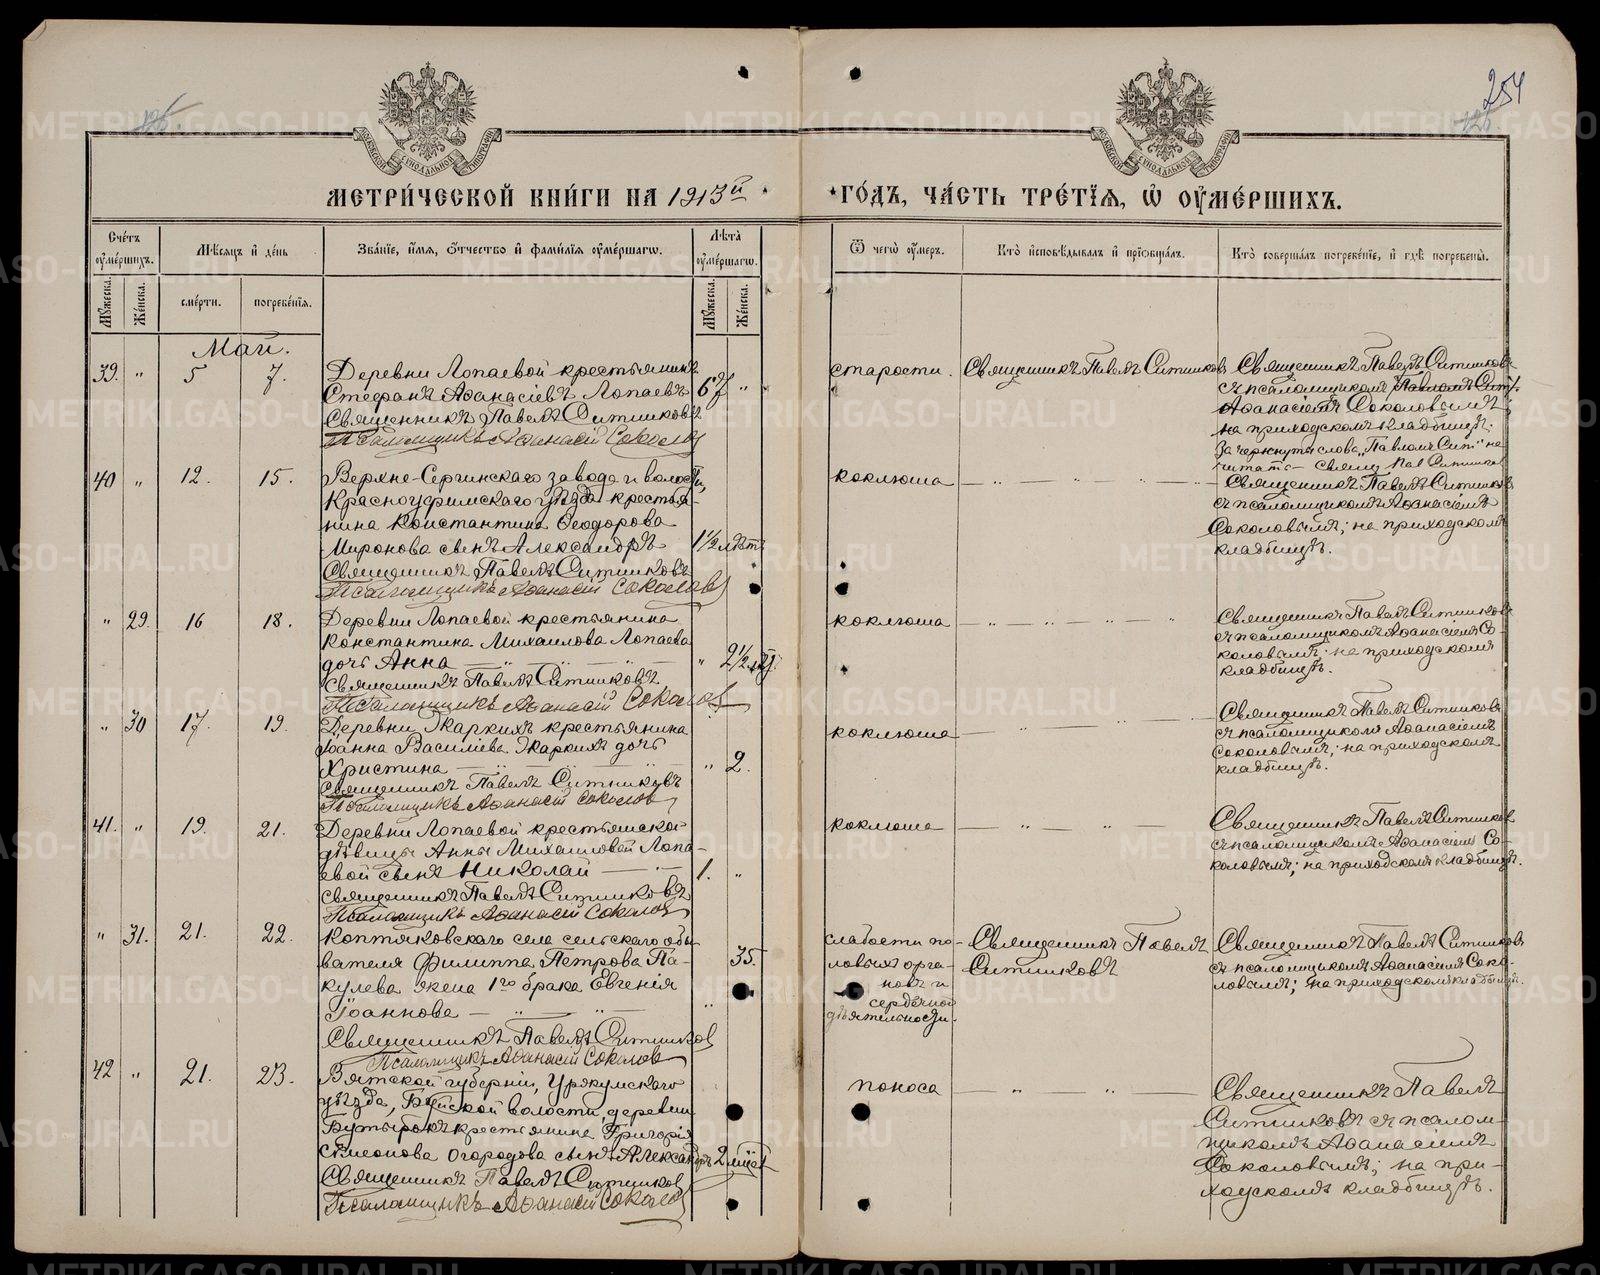 254
МЕТРИ́ЧЕСКОЙ КНИ́ГИ НА 1913й
ГО́ДЪ, ЧА́СТЬ ТРЕ́ТЇЯ, Ѿ ОУМЕ́РШИХЪ.
Счетъ оумершихъ.
Мѣсяцъ и день
Званіе, имя, отчество и фамилія оумершагѡ.
Лѣта оумершагѡ.
Ѿ чегѡ оумеръ.
Кто исповѣдывалъ и пріобщалъ.
Кто совершалъ погребеніе, и гдѣ погребены.
Мужеска.
Женска.
смерти.
погребенія.
Мужеска.
Женска.
Май.
39. " 5 7.
Деревни Лопаевой крестьянинъ
Стефанъ Аѳанасіевъ Лопаевъ 67 "
Священникъ Павелъ Ситниковъ
Псаломщикъ Аѳанасій Соколов
старости.
Священникъ Павелъ Ситниковъ
Священникъ Павелъ Ситниковъ
съ псаломщикомъ Павломъ Сит.
Аѳанасіемъ Соколовымъ;
на приходскомъ кладбищѣ.
Зачеркнутыя слова „Павломъ Сит" не
читать – Священ. Пав. Ситников
40 " 12. 15.
Верхне-Сергинскаго завода и волости,
Красноуфимскаго уѣзда крестья-
нина Константина Ѳеодорова
Миронова сынъ Александръ 1 1/2 лѣтъ
Священникъ Павелъ Ситниковъ
Псаломщикъ Аѳанасій Соколов
коклюша — " — " — " —
Священникъ Павелъ Ситников
съ псаломщикомъ Аѳанасіемъ
Соколовымъ; на приходскомъ
кладбищѣ.
" 29. 16 18.
Деревни Лопаевой крестьянина
Константина Михаилова Лопаева
дочь Анна — " — " — " 2 1/2
Священникъ Павелъ Ситниковъ
Псаломщикъ Аѳанасій Соколов
коклюша — " — " — " — "
Священникъ Павелъ Ситниковъ
съ псаломщикомъ Аѳанасіемъ Со-
коловымъ; на приходскомъ
кладбищѣ.
" 30 17. 19.
Деревни Жаркихъ крестьянина
Іоанна Василіева Жаркихъ дочь
Христина — " — " — " 2.
Священникъ Павелъ Ситниковъ
Псаломщикъ Аѳанасій Соколов
коклюша — " — " —
Священникъ Павелъ Ситниковъ
съ псаломщикомъ Аѳанасіемъ
Соколовымъ; на приходскомъ
кладбищѣ.
41. " 19. 21.
Деревни Лопаевой крестьянской
дѣвицы Анны Михаиловой Лопа-
евой сынъ Николай — " — 1. "
Священникъ Павелъ Ситниковъ
Псаломщикъ Аѳанасій Соколов
коклюша — " — " —
Священникъ Павелъ Ситников
съ псаломщикомъ Аѳанасіемъ Со-
коловымъ; на приходскомъ кладбищѣ.
" 31. 21. 22.
Коптяковскаго села сельскаго обы-
вателя Филиппа Петрова Па- 35.
кулева жена 1го брака Евгенія
Іоаннова — " — " — "
Священникъ Павелъ Ситников
Псаломщикъ Аѳанасій Соколов
слабости по-
ловыхъ орга-
новъ и
сердечной
дѣятельности.
Священникъ Павелъ
Ситниковъ
Священникъ Павелъ Ситниковъ
съ псаломщикомъ Аѳанасіемъ Соко-
ловымъ; на приходскомъ кладбищѣ.
42 " 21. 23.
Вятской губерніи, Уржумскаго
уѣзда, Буйской волости, деревни
Бутырокъ крестьянина Григорія
Симеонова Огородова сынъ Александръ
Священникъ Павелъ Ситников
Псаломщикъ Аѳанасій Соколов
поноса — " — " —
Священникъ Павелъ
Ситниковъ съ псалом-
щикомъ Аѳанасіемъ
Соколовымъ; на при-
ходскомъ кладбищѣ.
METRIKI.GASO-URAL.RU